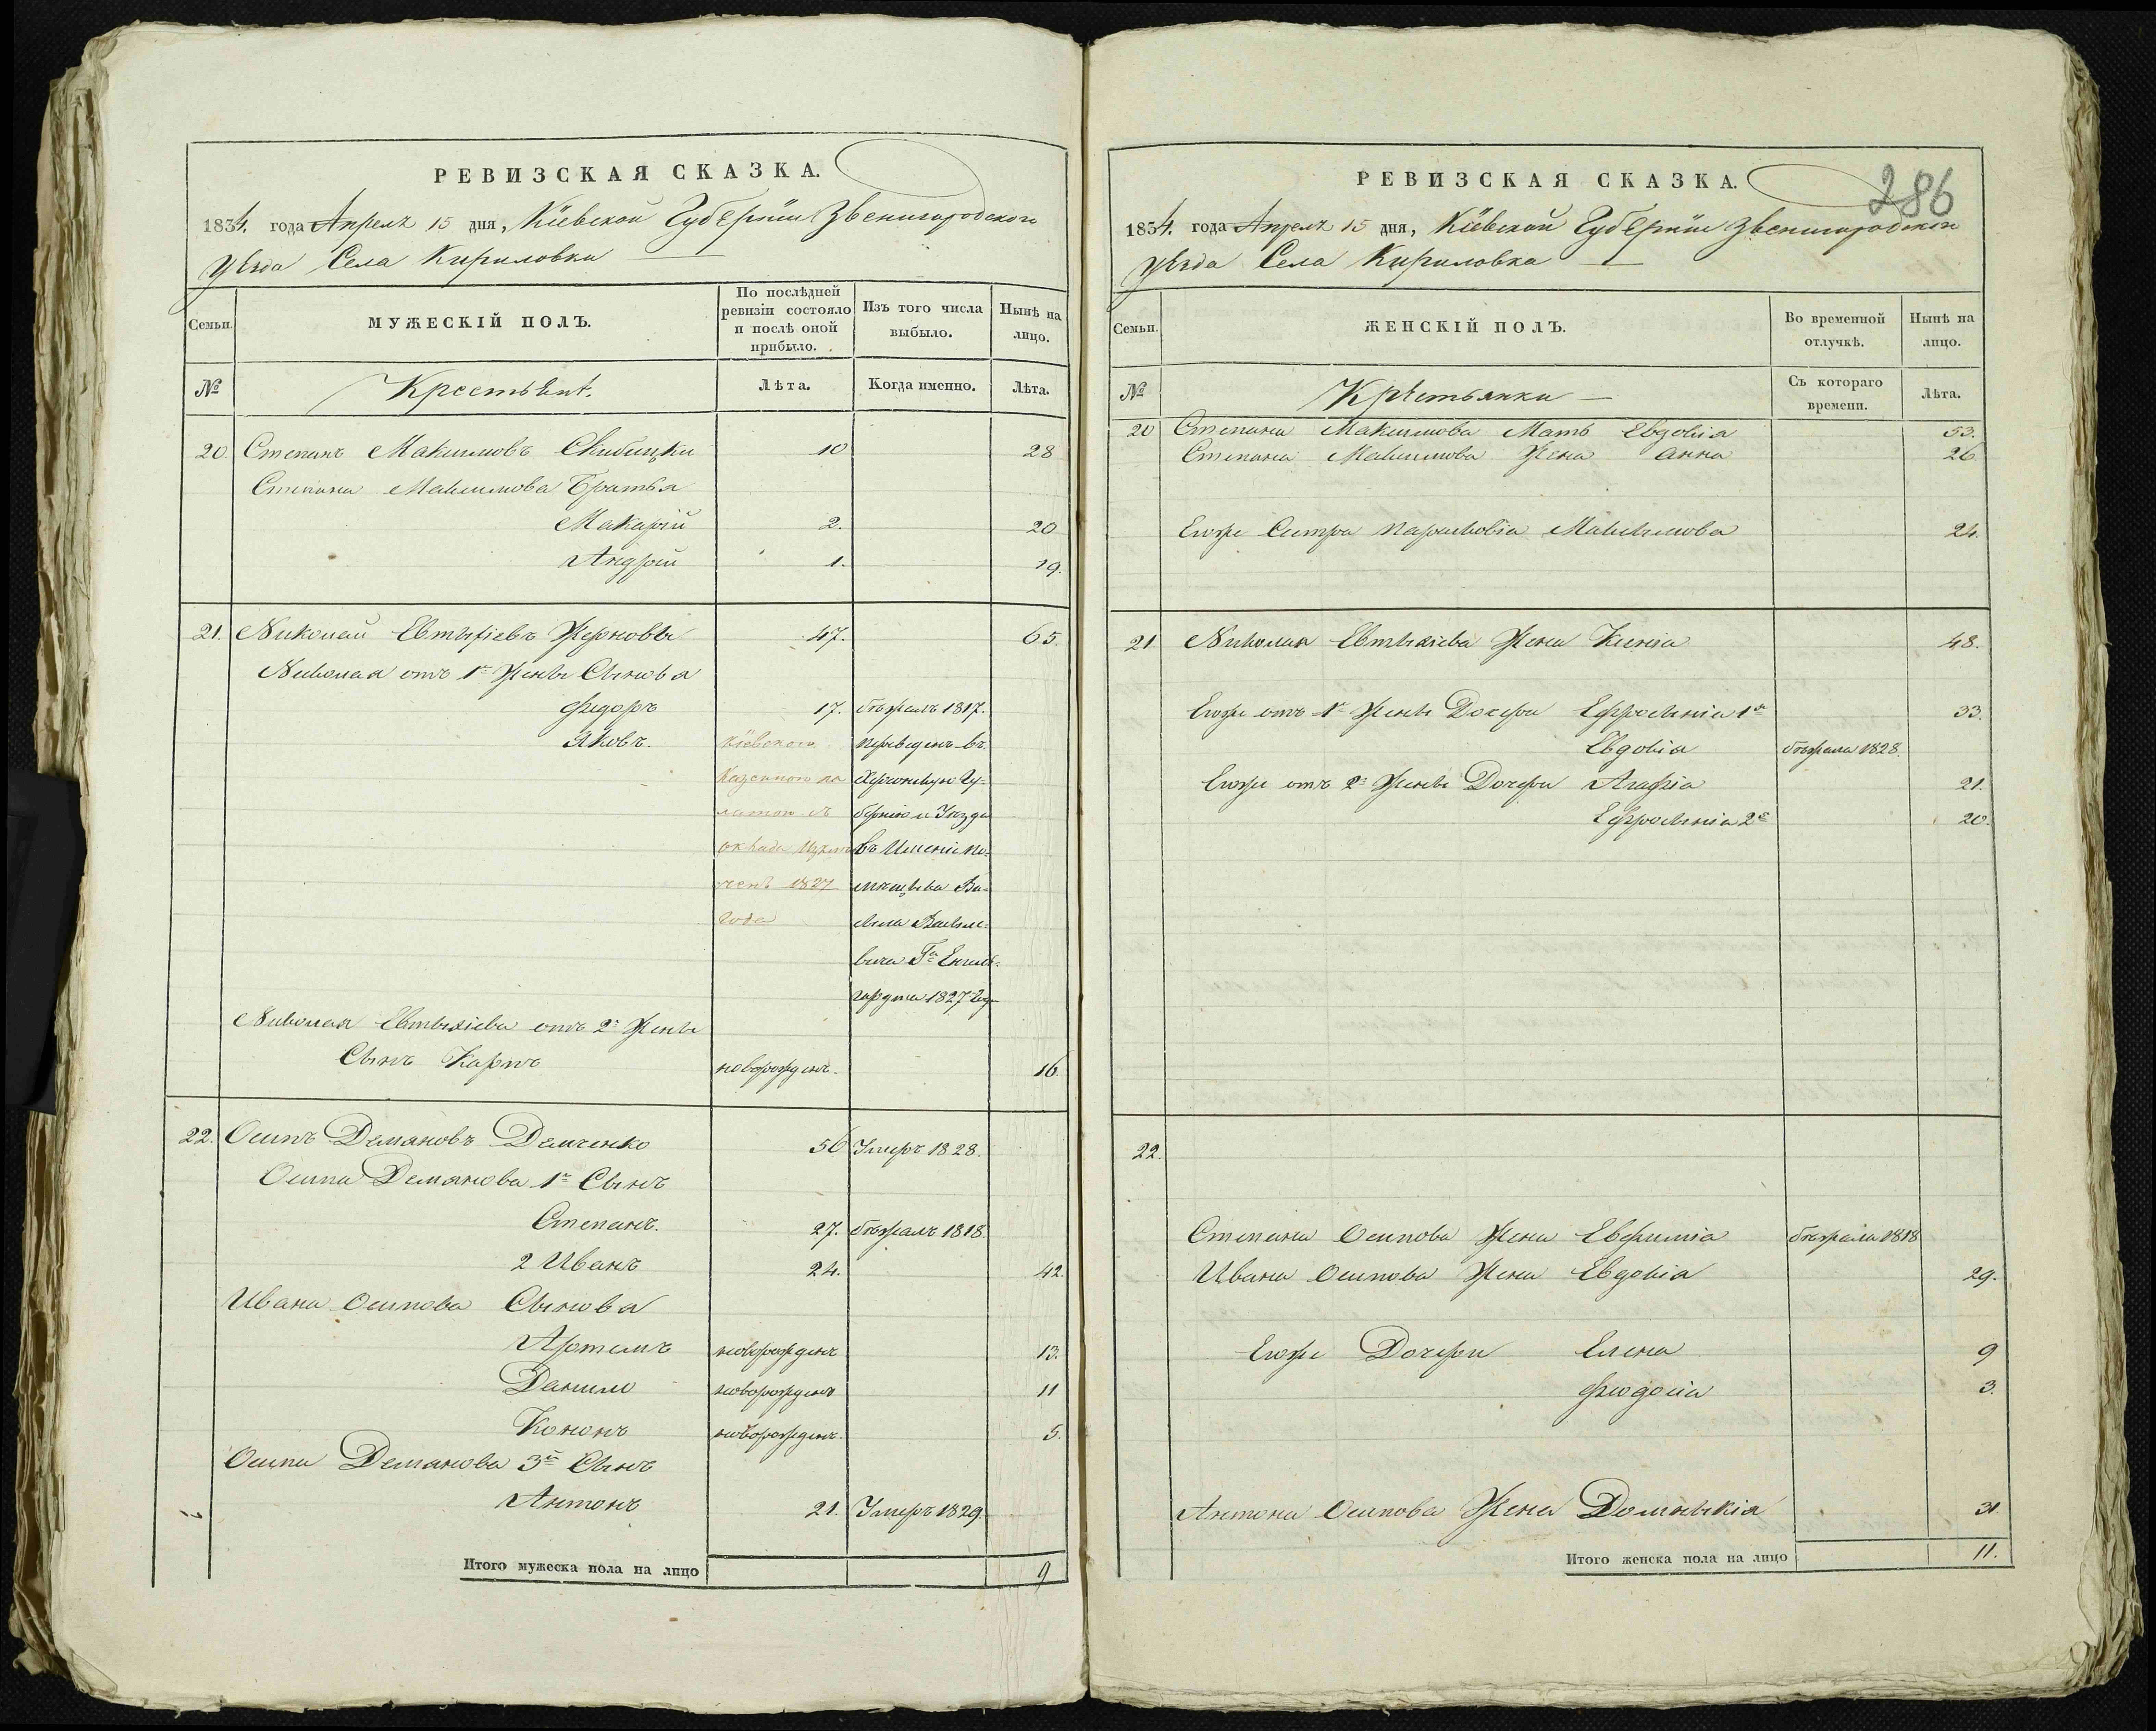 РЕВИЗСКАЯ СКАЗКА.
1834. года Апреля 15 дня, Кіевской Губерніи Звенигородского
уѣзда Села Кириловки
Семьи.
МУЖЕСКІЙ ПОЛЪ.
По послѣдней ревизіи состояло и послѣ оной прибыло.
Изъ того числа выбыло.
Нынѣ на лицо.
№
Крестьяне.
Лѣта.
Когда именно.
Лѣта.
20. Степанъ Макимовъ 10 28
Степана Макимова Братья
Макарій 2. 20
Андрій 1. 19.
21. Николай Евтыхіевъ 47. 65.
Николая отъ 1й Жены Сыновья
Федоръ 17. бѣжалъ 1817.
Яковъ. Кіевскою переведенъ въ
Казенною па Херсонскую Гу-
латою съ бернію и Уезда
оклада Исключ въ Именіе по-
ченъ 1827 мѣщика Ва-
года силія Василье-
вича Гна Енгель-
гардта 1827 года
Николая Евтыхіева отъ 2й Жены
Сынъ Карпъ новорожденъ. 16.
22. Осипъ Демяновъ Демченко 56 Умеръ 1828.
Осипа Демянова 1й Сынъ
Степанъ. 27. бѣжалъ 1818.
2 Иванъ 24. 42.
Ивана Осипова Сыновья
Артемъ новорожденъ 13.
Данило новорожденъ 11
Кононъ новорожденъ. 5.
Осипа Демянова 3й Сынъ
Антонъ 21. Умеръ 1829.
Итого мужеска пола на лицо 9
286
РЕВИЗСКАЯ СКАЗКА.
1834. года Апреля 15 дня, Кіевской Губерніи Звенигородского
уѣзда Села Кириловка
Семьи.
ЖЕНСКІЙ ПОЛЪ.
Во временной отлучкѣ.
Нынѣ на лицо.
№
Крѣстьянки
Съ котораго времени.
Лѣта.
20 Степана Макимова Мать Евдокія 53.
Степана Макимова Жена Анна 26
Егоже Сестра Парасковія Максимова 24.
21. Николая Евтыхіева Жена Ксенія 48.
Егоже отъ 1й Жены Дочери Ефросинія 1я 33.
Евдокія бѣжала 1828.
Егоже отъ 2й Жены Дочери Агафія 21.
Ефросинія 2я 20.
22.
Степана Осипова Жена Евфимія бѣжала 1818
Ивана Осипова Жена Евдокія 29.
Егоже Дочери Елена 9
Феодосія 3.
Антона Осипова Жена Домникія 31.
Итого женска пола на лицо 11.